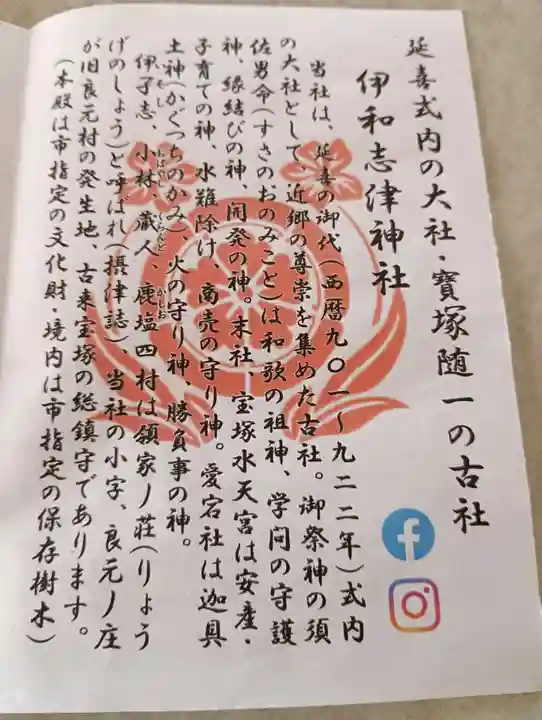 延喜式内の大社・寶塚随一の古社
伊和志津神社
当社は、延喜の御代(西暦九〇一～九二二年)式内
の大社として、近郷の尊崇を集めた古社。御祭神の須
佐男命(すさのおのみこと)は和歌の祖神、学問の守護
神、縁結びの神、開発の神。末社、宝塚水天宮は安産・
子育ての神、水難除け、商売の守り神。愛宕社は迦具
土神(かぐつちのかみ)火の守り神、勝負事の神。
伊孑志、小林、蔵人、鹿塩四村は領家ノ荘(りょう
げのしょう)と呼ばれ(摂津誌)、当社の小字、良元ノ庄
が旧良元村の発生地、古来宝塚の総鎮守であります。
(本殿は市指定の文化財・境内は市指定の保存樹木)